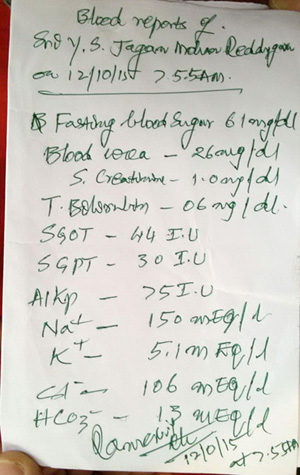 Blood reports of.
Sri Y. S. Jagan Mohan Reddy garu
on 12/10/15 at 7.55AM.
Fasting blood sugar 61mg/dl
Blood urea - 26mg/dl
S. Creatinine - 1.0mg/dl
T. Bilirubin - 06mg/dl.
SGOT - 44 I.U
SGPT - 30 I.U
Alkp - 75 I.U
Na+ - 150 mEq/l
K+ - 5.1 m Eq/l
Cl- - 106 mEq/l
HCO3- - 13 mEq/l
12/10/15
at 7.55AM